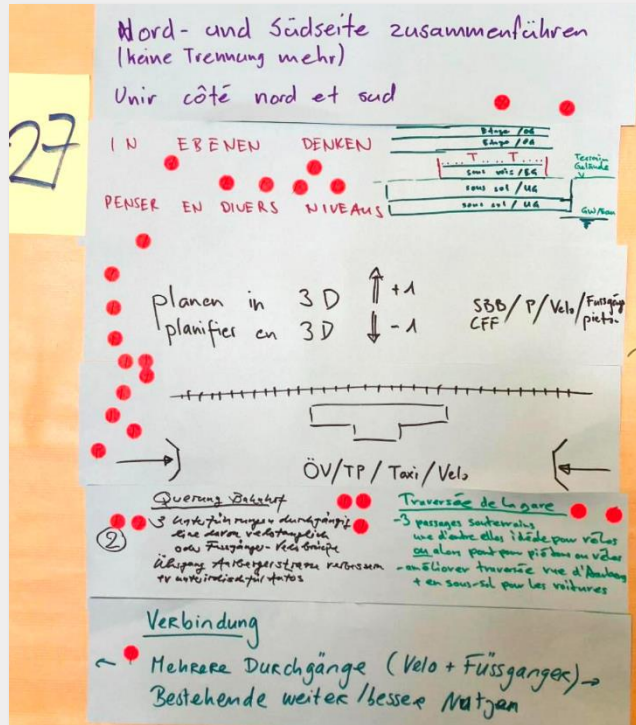 27
Nord- und Südseite zusammenführen
(keine Trennung mehr)
Unir côté nord et sud
IN EBENEN DENKEN
PENSER EN DIVERS NIVEAUS
Etage / OG
Etage / OG
T .... T
sous sol / UG
sous sol / UG
Gelände
planen in 3D +1
planifier en 3D -1
SBB / P / Velo / Fussgäng
CFF pieto
ÖV/TP/Taxi/Velo
Querung Bahnhof
② 3 Unterführungen durchgängig
eine davon velotauglich
oder Fussgänger-Velobrücke
Übergang Aarbergerstrasse verbessern
unterirdisch für Autos
Traversée de la gare
-3 passages souterrains,
une d'entre elles idéale pour vélos
ou alors pont pour piétons ou vélos
- améliorer traversée rue d'Aarberg
+ en sous-sol pour les voitures
Verbindung
← Mehrere Durchgänge (Velo + Füssganger) →
Bestehende weiter/besser Nutzen